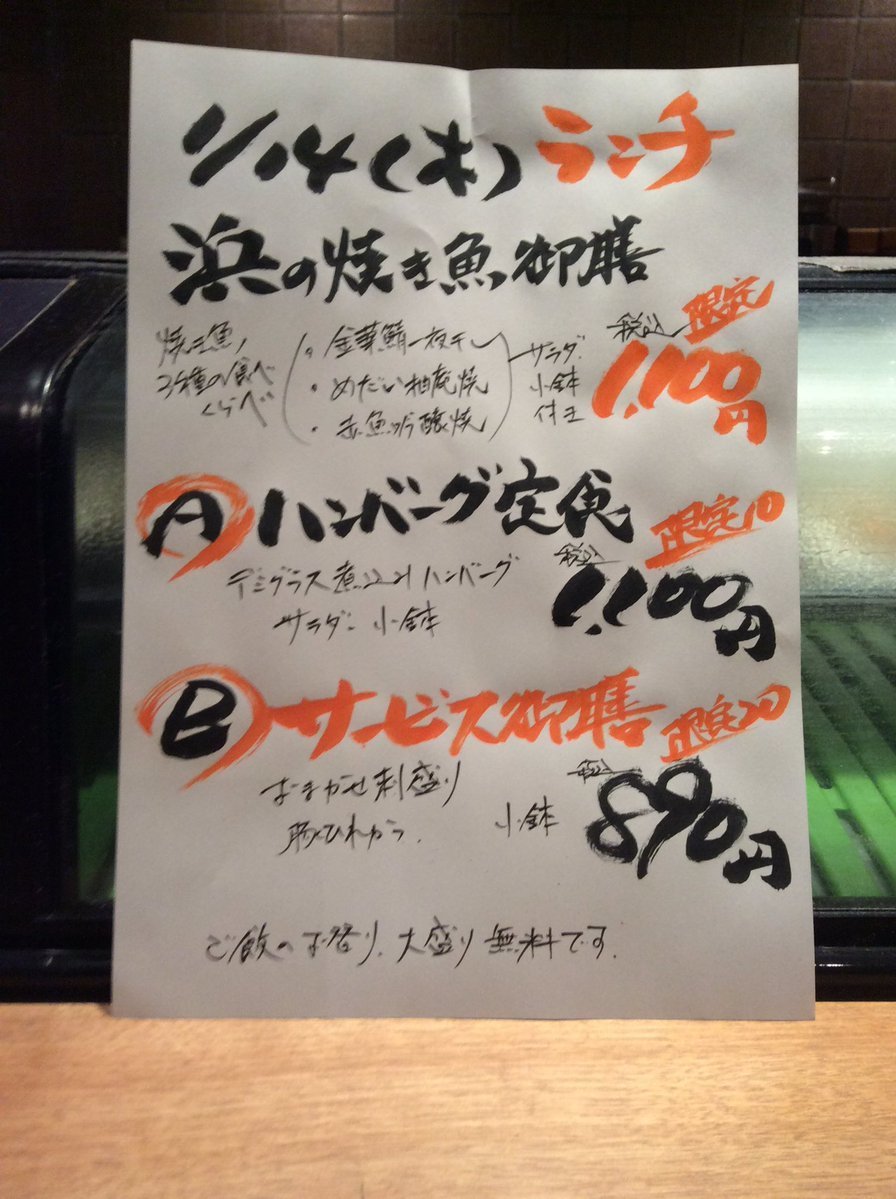 1/14(木)ランチ
浜の焼き魚御膳
限定
税込
1,100円
焼き魚
3種の食べ
くらべ
・金華鯖一夜干し
・めだい柚庵焼
・赤魚吟醸焼
サラダ
小鉢
付
A ハンバーグ定食
限定10
税込
1,100円
デミグラス煮込みハンバーグ
サラダ 小鉢
B サービス御膳
限定20
税込
890円
おまかせ刺盛り
豚ひれかつ
小鉢
ご飯のお替り、大盛り無料です。